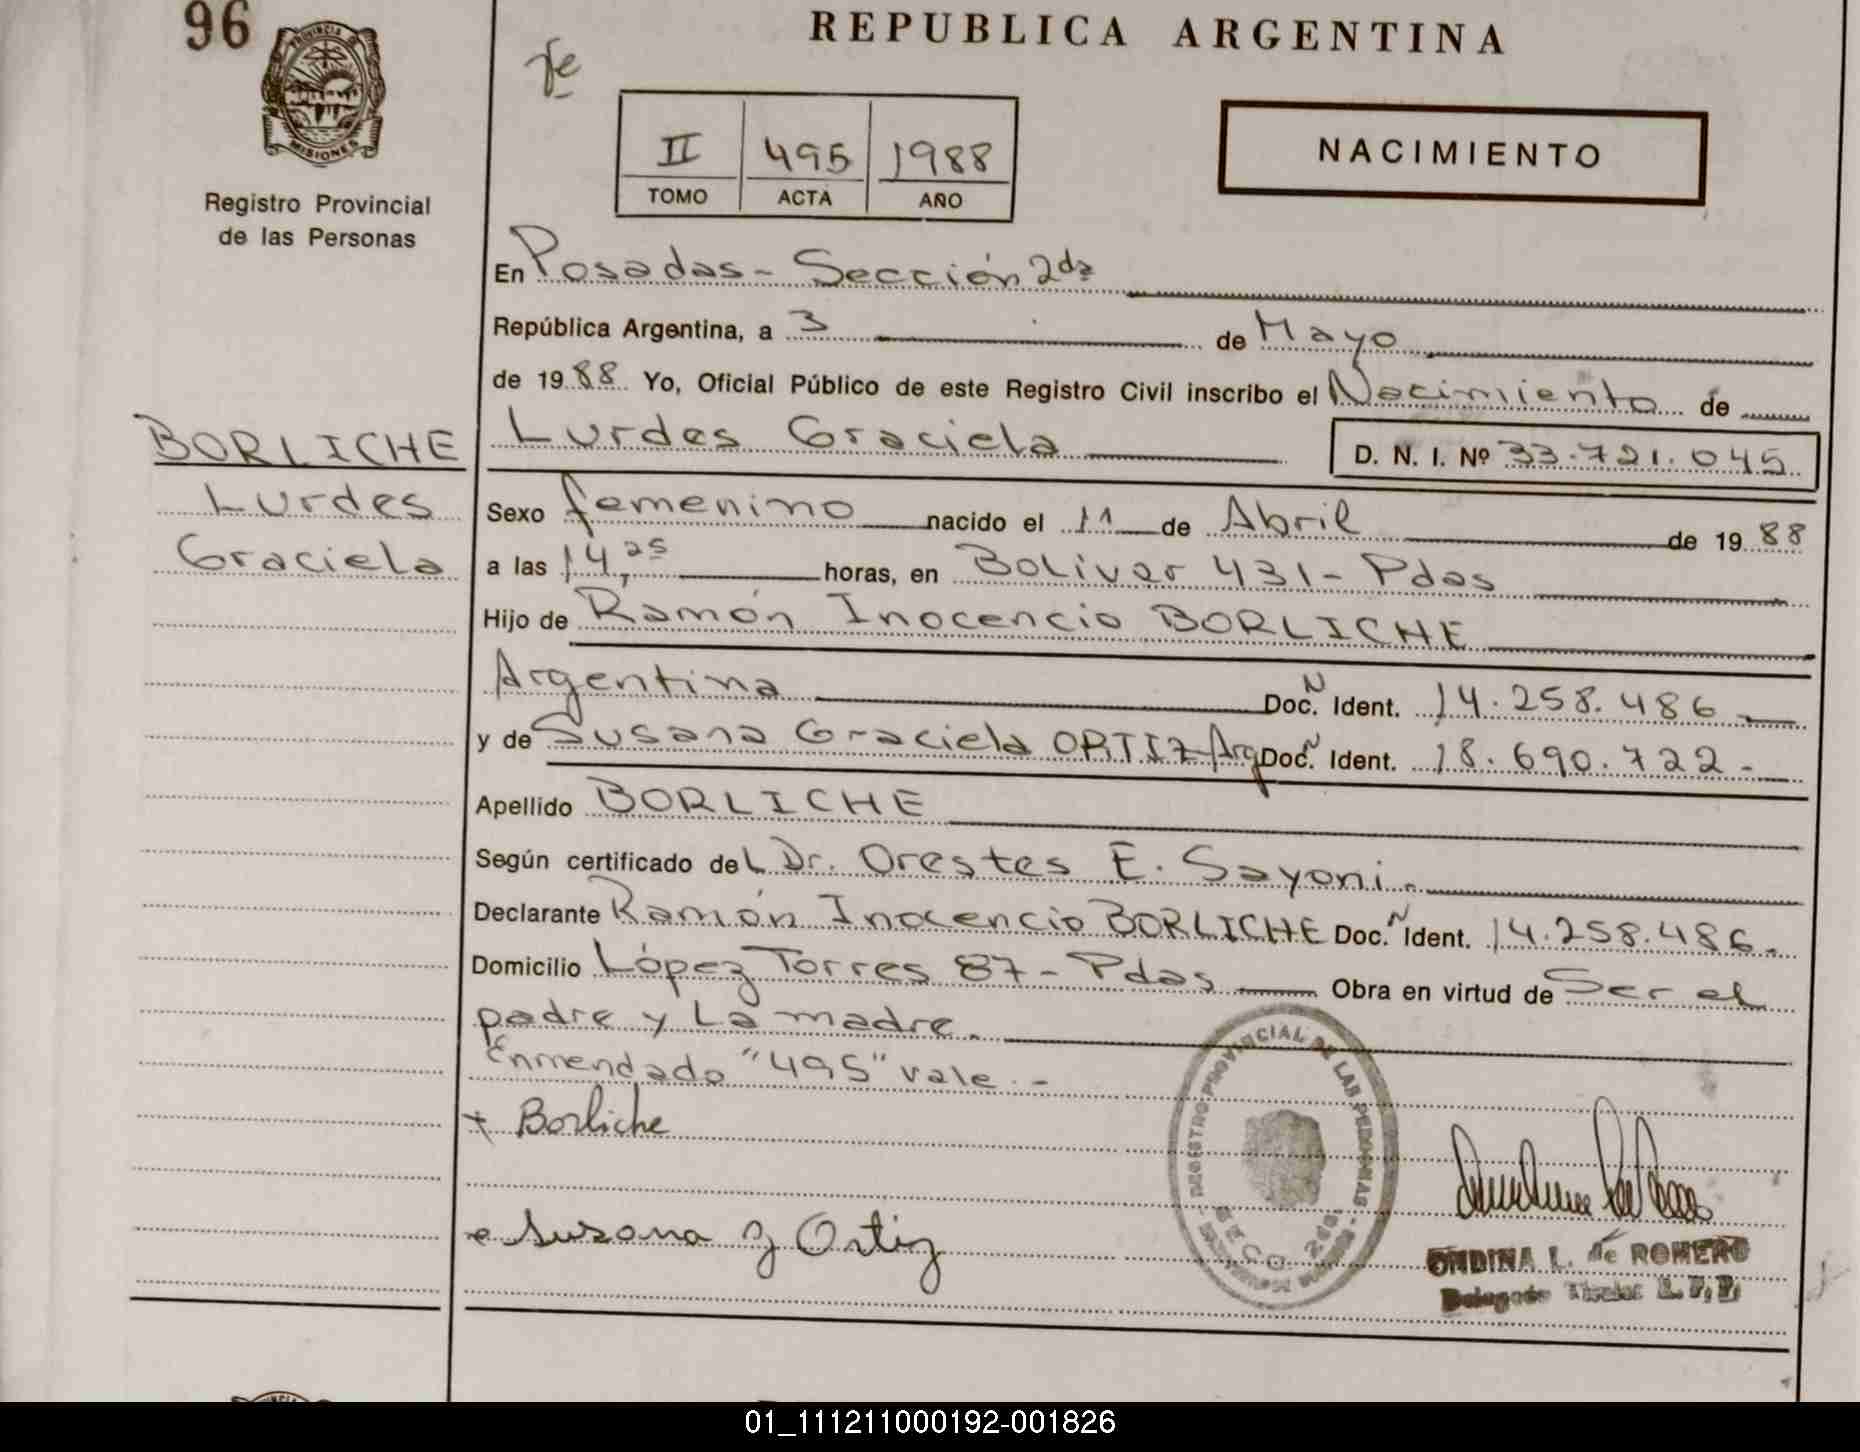 96
PROVINCIA DE
MISIONES
Registro Provincial
de las Personas
REPUBLICA ARGENTINA
II 495 1988
TOMO ACTA AÑO
NACIMIENTO
En Posadas - Sección 2da
República Argentina, a 3 de Mayo
de 1988 Yo, Oficial Público de este Registro Civil inscribo el Nacimiento de
BORLICHE
Lurdes Graciela D. N. I. Nº 33.721.045
Lurdes
Graciela
Sexo femenino nacido el 11 de Abril de 1988
a las 14,25 horas, en Bolivar 431 - Pdas
Hijo de Ramón Inocencio BORLICHE
Argentina Doc. N Ident. 14.258.486
y de Susana Graciela ORTIZ Arg Doc. N Ident. 18.690.722.-
Apellido BORLICHE
Según certificado del Dr. Orestes E. Sayoni.
Declarante Ramón Inocencio BORLICHE Doc. N Ident. 14.258.486.
Domicilio López Torres 87 - Pdas Obra en virtud de Ser el
padre y La madre.
Enmendado "495" vale.-
+ Borliche
Susana G Ortiz
PROVINCIAL DE LAS PERSONAS
SECC. 2da.
ONDINA L. de ROMERO
Delegada Titular R. P. P.
01_111211000192-001826